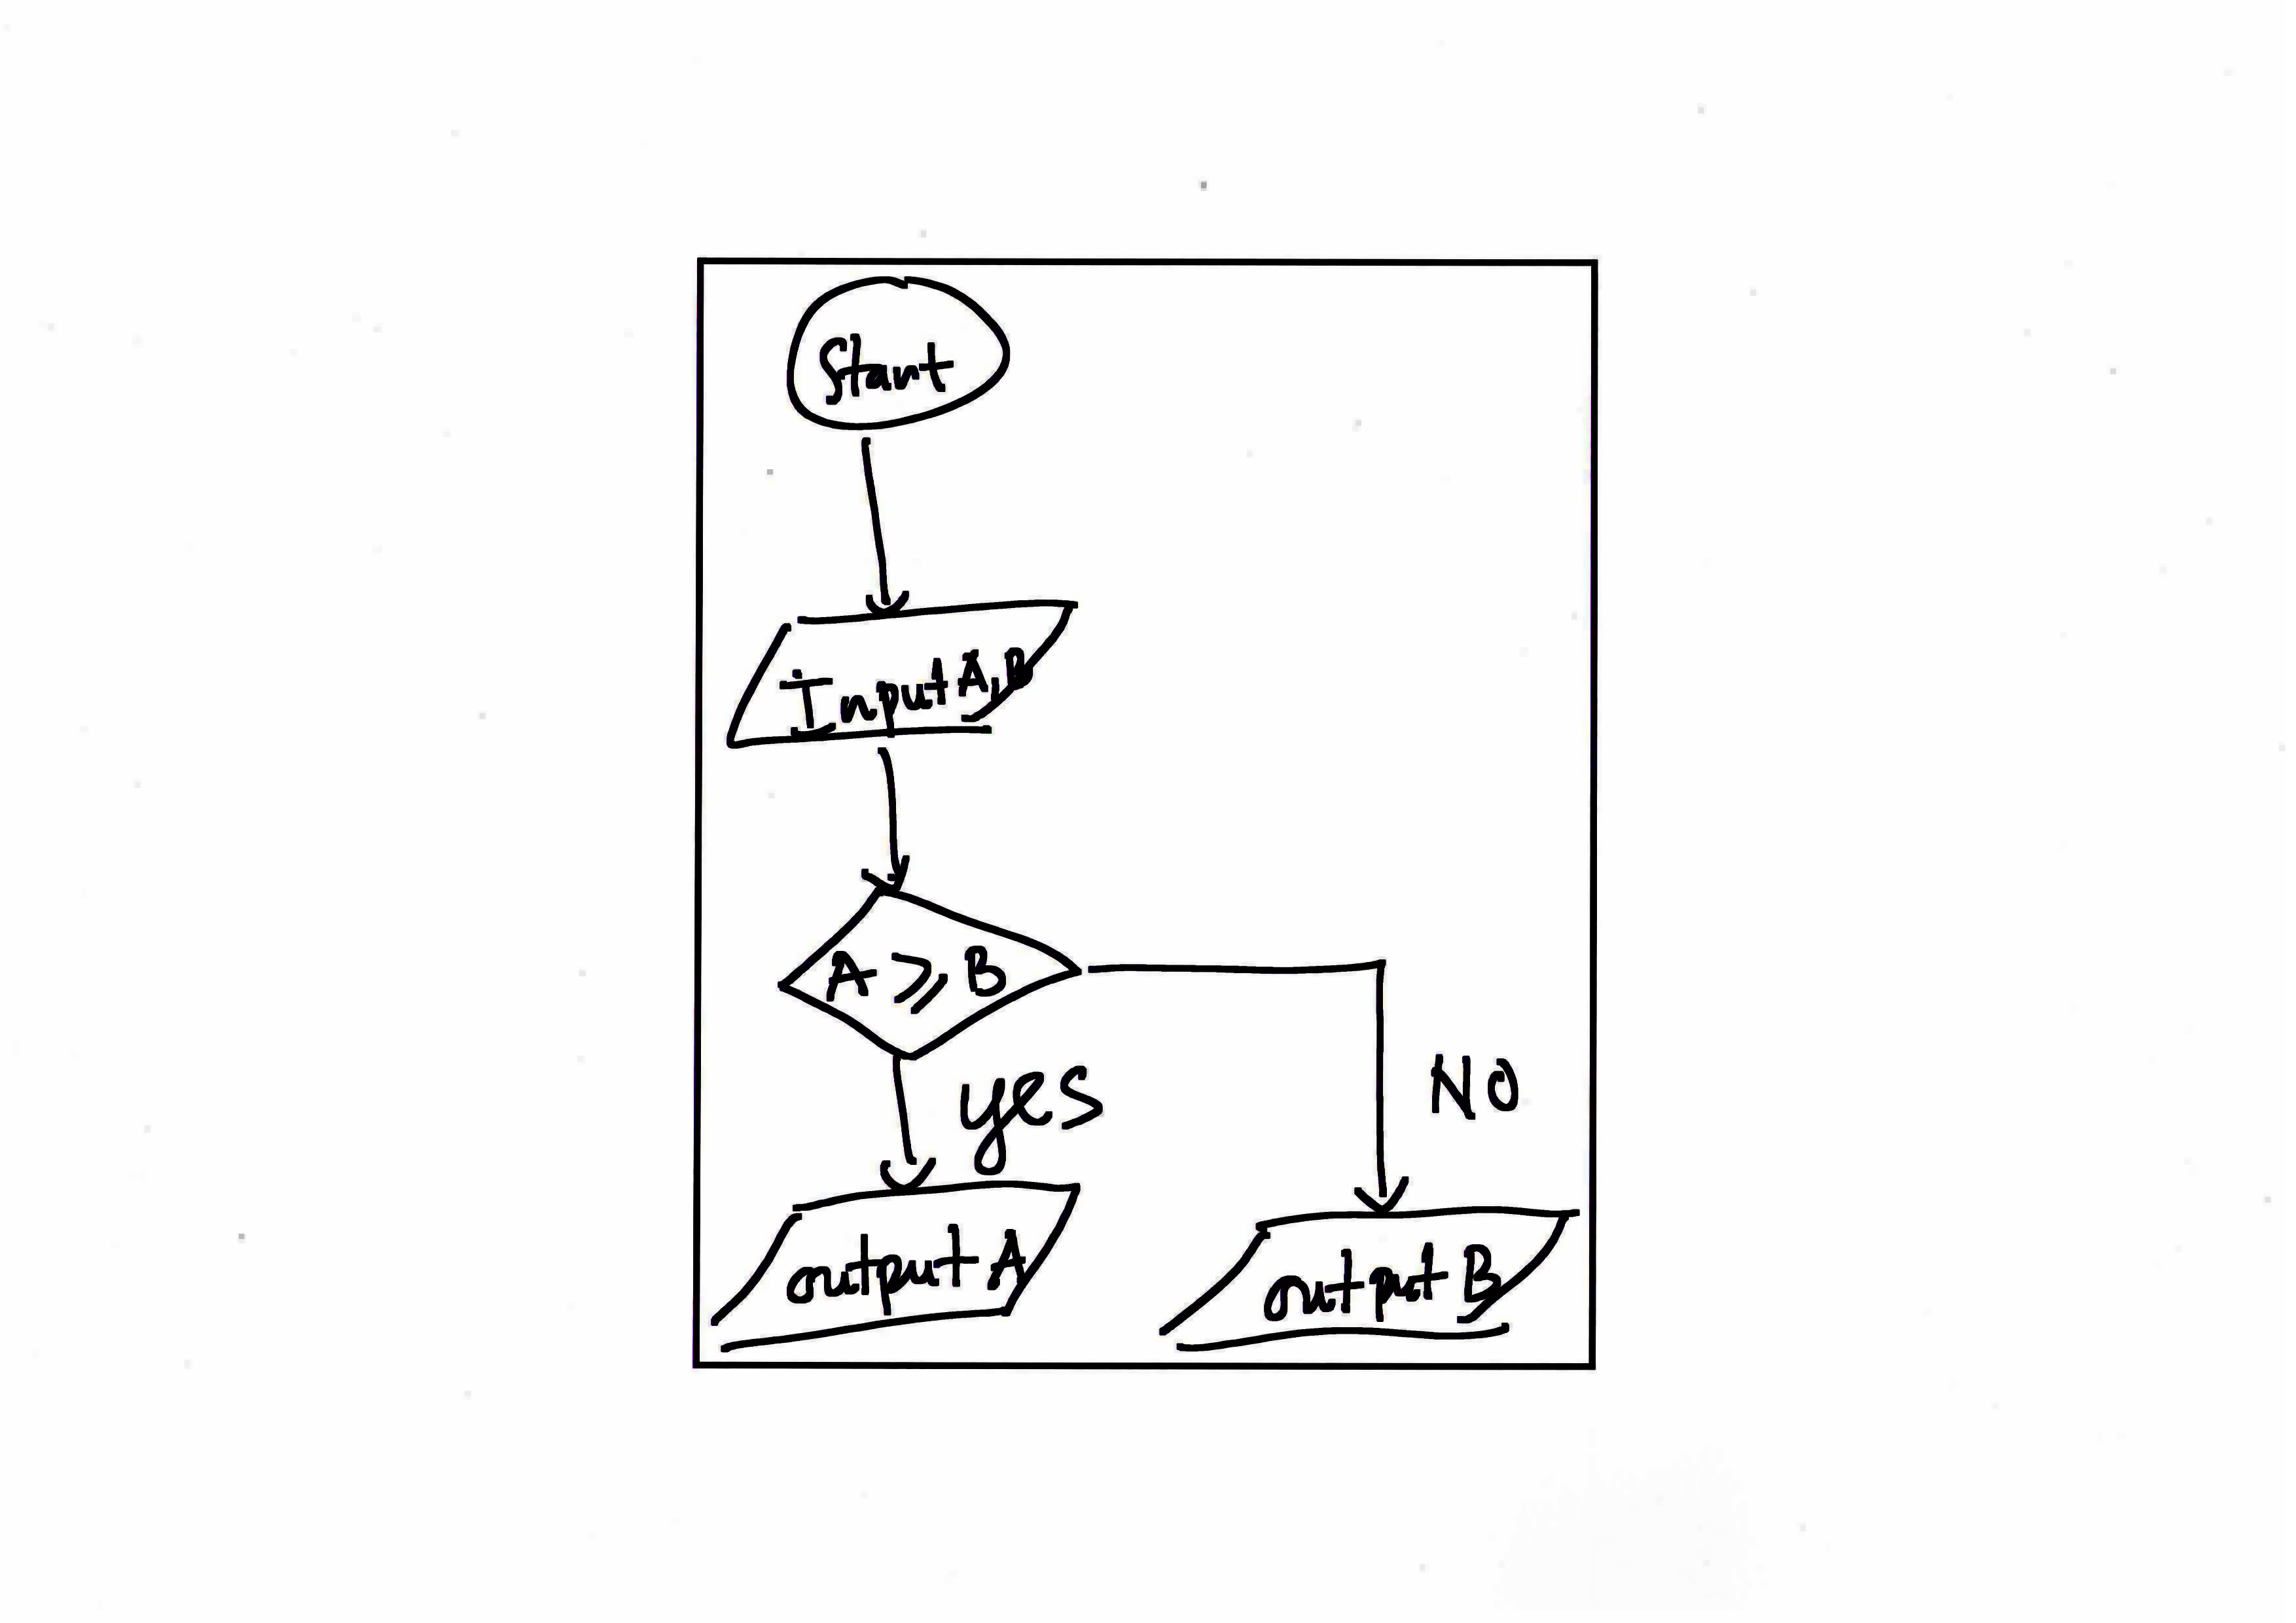 Start
Input A,B
A ⩾ B
yes
NO
output A
output B